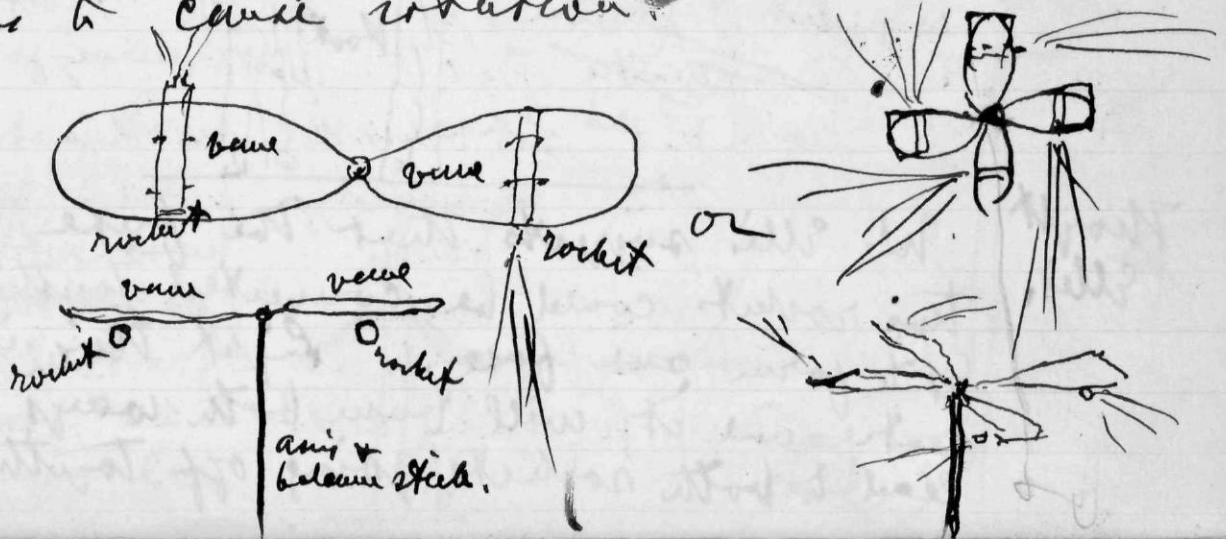 to cause rotation.
vane
vane
rocket
rocket
or
vane
vane
rocket
rocket
axis &
balance stick.